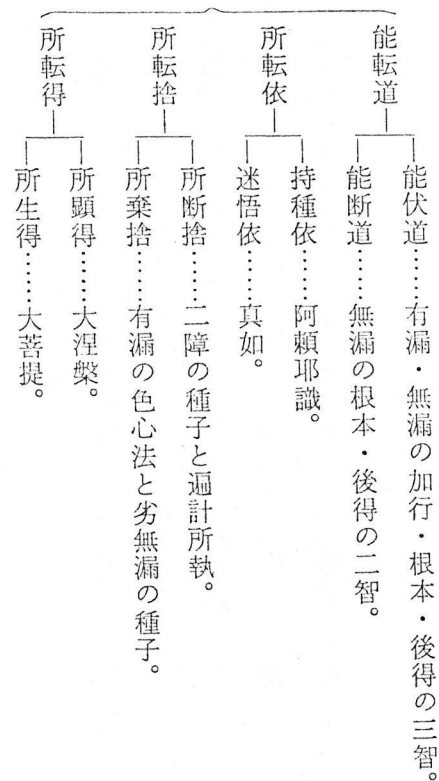 能転道
能伏道……有漏・無漏の加行・根本・後得の三智。
能断道……無漏の根本・後得の二智。
所転依
持種依……阿頼耶識。
迷悟依……真如。
所転捨
所断捨……二障の種子と遍計所執。
所棄捨……有漏の色心法と劣無漏の種子。
所転得
所顕得……大涅槃。
所生得……大菩提。